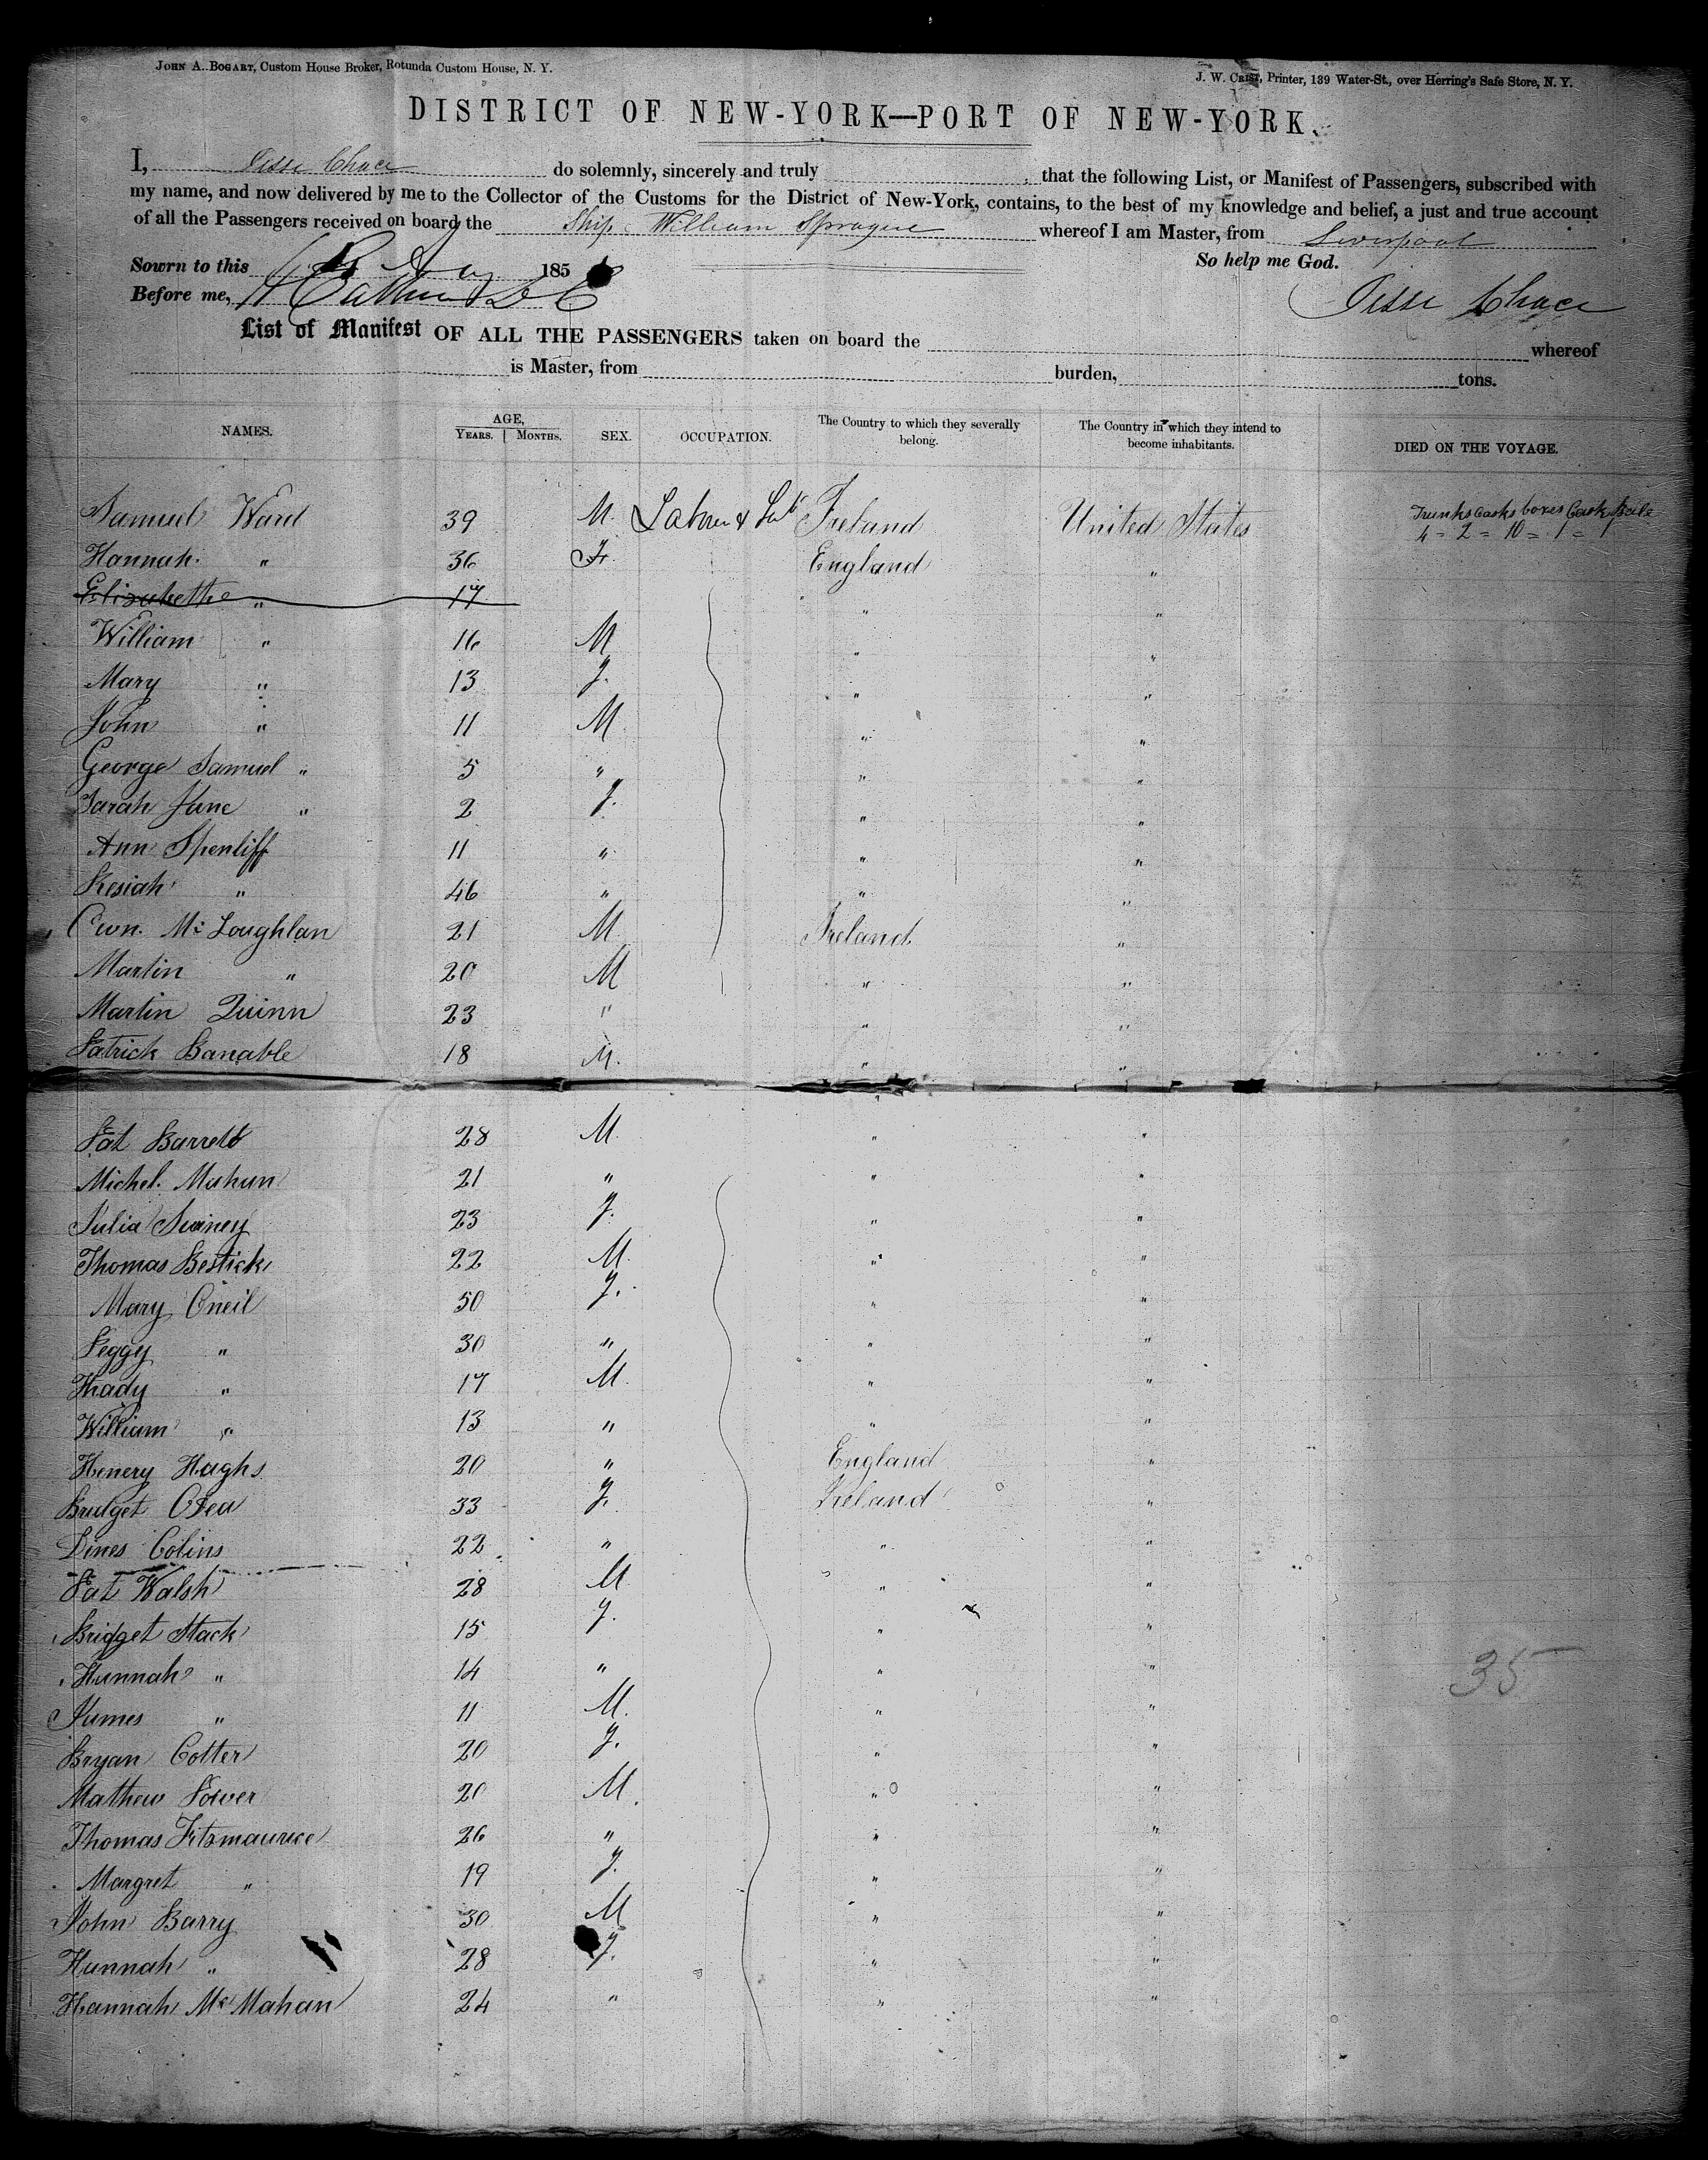 JOHN A. BOGART, Custom House Broker, Rotunda Custom House, N. Y.
J. W. CRIST, Printer, 139 Water-St., over Herring's Safe Store, N. Y.
DISTRICT OF NEW-YORK—PORT OF NEW-YORK.
I, Jesse Chace do solemnly, sincerely and truly , that the following List, or Manifest of Passengers, subscribed with
my name, and now delivered by me to the Collector of the Customs for the District of New-York, contains, to the best of my knowledge and belief, a just and true account
of all the Passengers received on board the Ship William Sprague whereof I am Master, from Liverpool
Sowrn to this 185 So help me God.
Before me, Jesse Chace
List of Manifest OF ALL THE PASSENGERS taken on board the whereof
is Master, from burden, tons.
NAMES. AGE, YEARS. MONTHS. SEX. OCCUPATION. The Country to which they severally belong. The Country in which they intend to become inhabitants. DIED ON THE VOYAGE.
Samuel Ward 39 M. Ireland United States Trunks Casks boxes Cask Bale
4 = 2 = 10 = 1 = 1
Hannah " 36 F. England "
Elizabeth " 17 " "
William " 16 M " "
Mary " 13 F. " "
John " 11 M " "
George Samuel " 5 " " "
Sarah Jane " 2 F. " "
Ann Spenliff 11 " " "
Kesiah " 46 " " "
Own. Mc Loughlan 21 M Ireland "
Martin " 20 M " "
Martin Quinn 23 " " "
Patrick Banable 18 M. " "
Pat Barrett 28 M. " "
Michel. Mahun 21 " " "
Julia Swiney 23 F. " "
Thomas Bestick 22 M. " "
Mary Oneil 50 F. " "
Peggy " 30 " " "
Thady " 17 M. " "
William " 13 " " "
Henery Haghs 20 " England "
Bridget OFea 33 F. Ireland "
Dines Colins 22 " " "
Pat Walsh 28 M " "
Bridget Stack 15 F. " "
Hannah " 14 " " "
35
James " 11 M. " "
Bryan Cotter 20 F. " "
Mathew Power 20 M. " "
Thomas Fitzmaurice 26 " " "
Margret " 19 F. " "
John Barry 30 M " "
Hannah " 28 F. " "
Hannah Mc Mahan 24 " " "